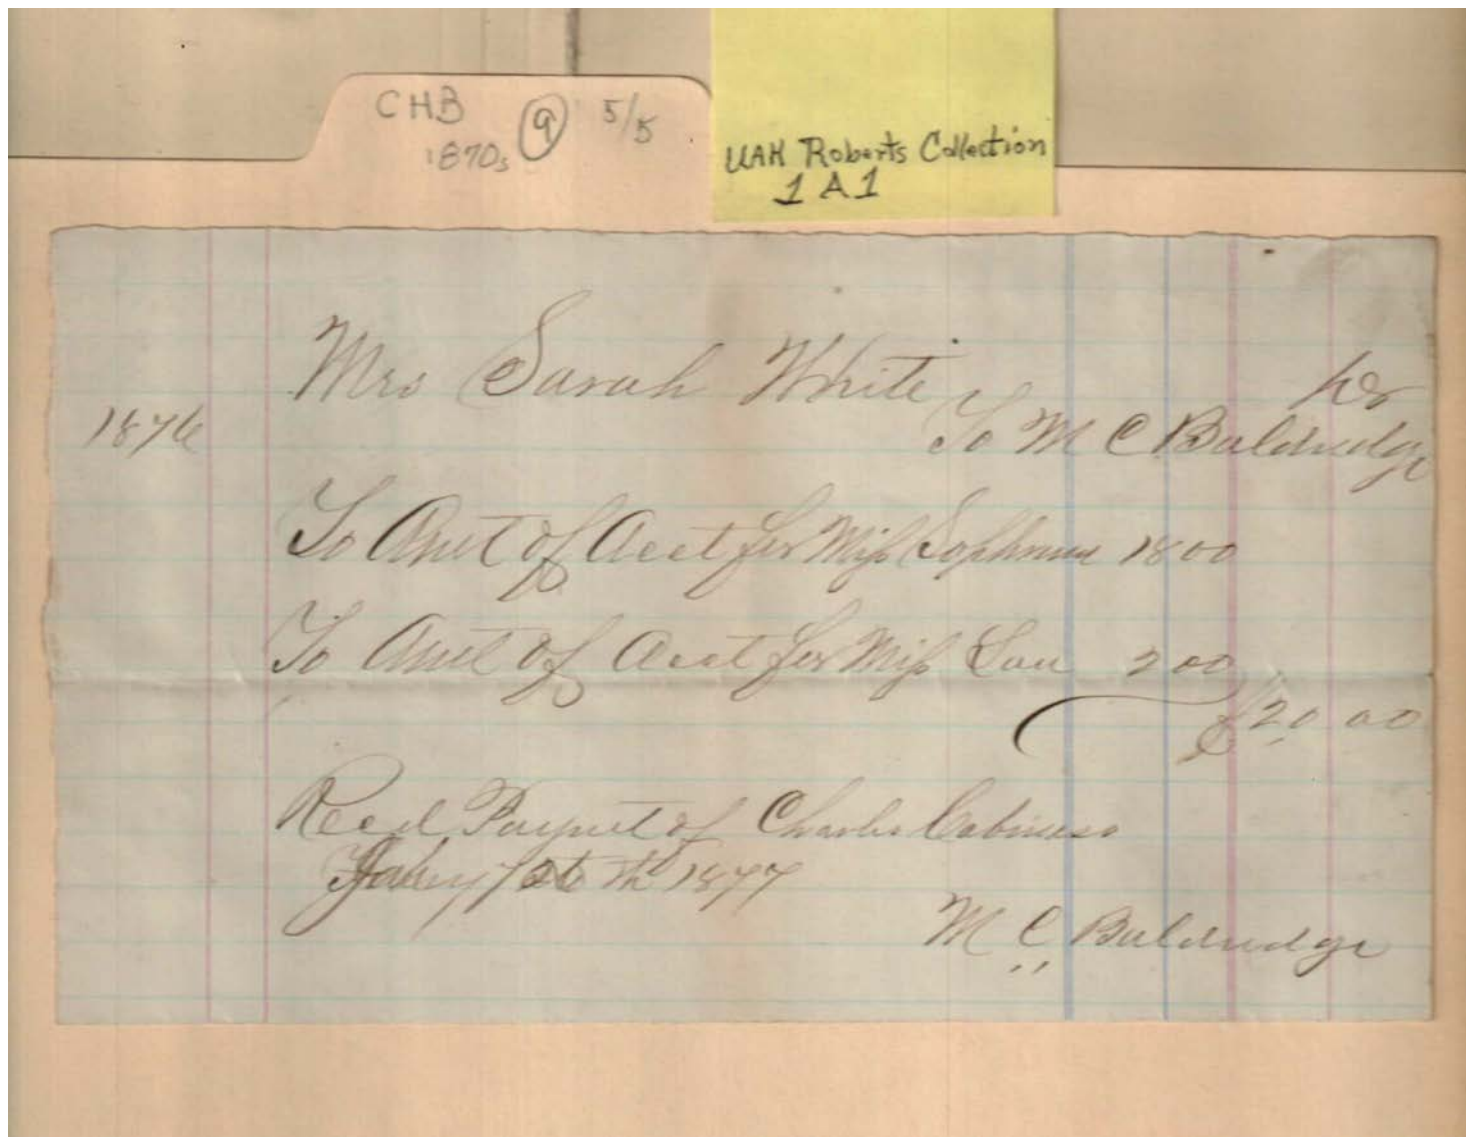 CHB 9 5/5
1870s
UAH Roberts Collection
1 A 1
Mrs Sarah White Dr
1876 To M C Baldridge
To Amt of Acct for Miss 18 00
To Amt of Acct for Miss Lou 2 00
$20 00
Recd Paymt of Charles Cabiness
26 th 1877
M C Baldridge